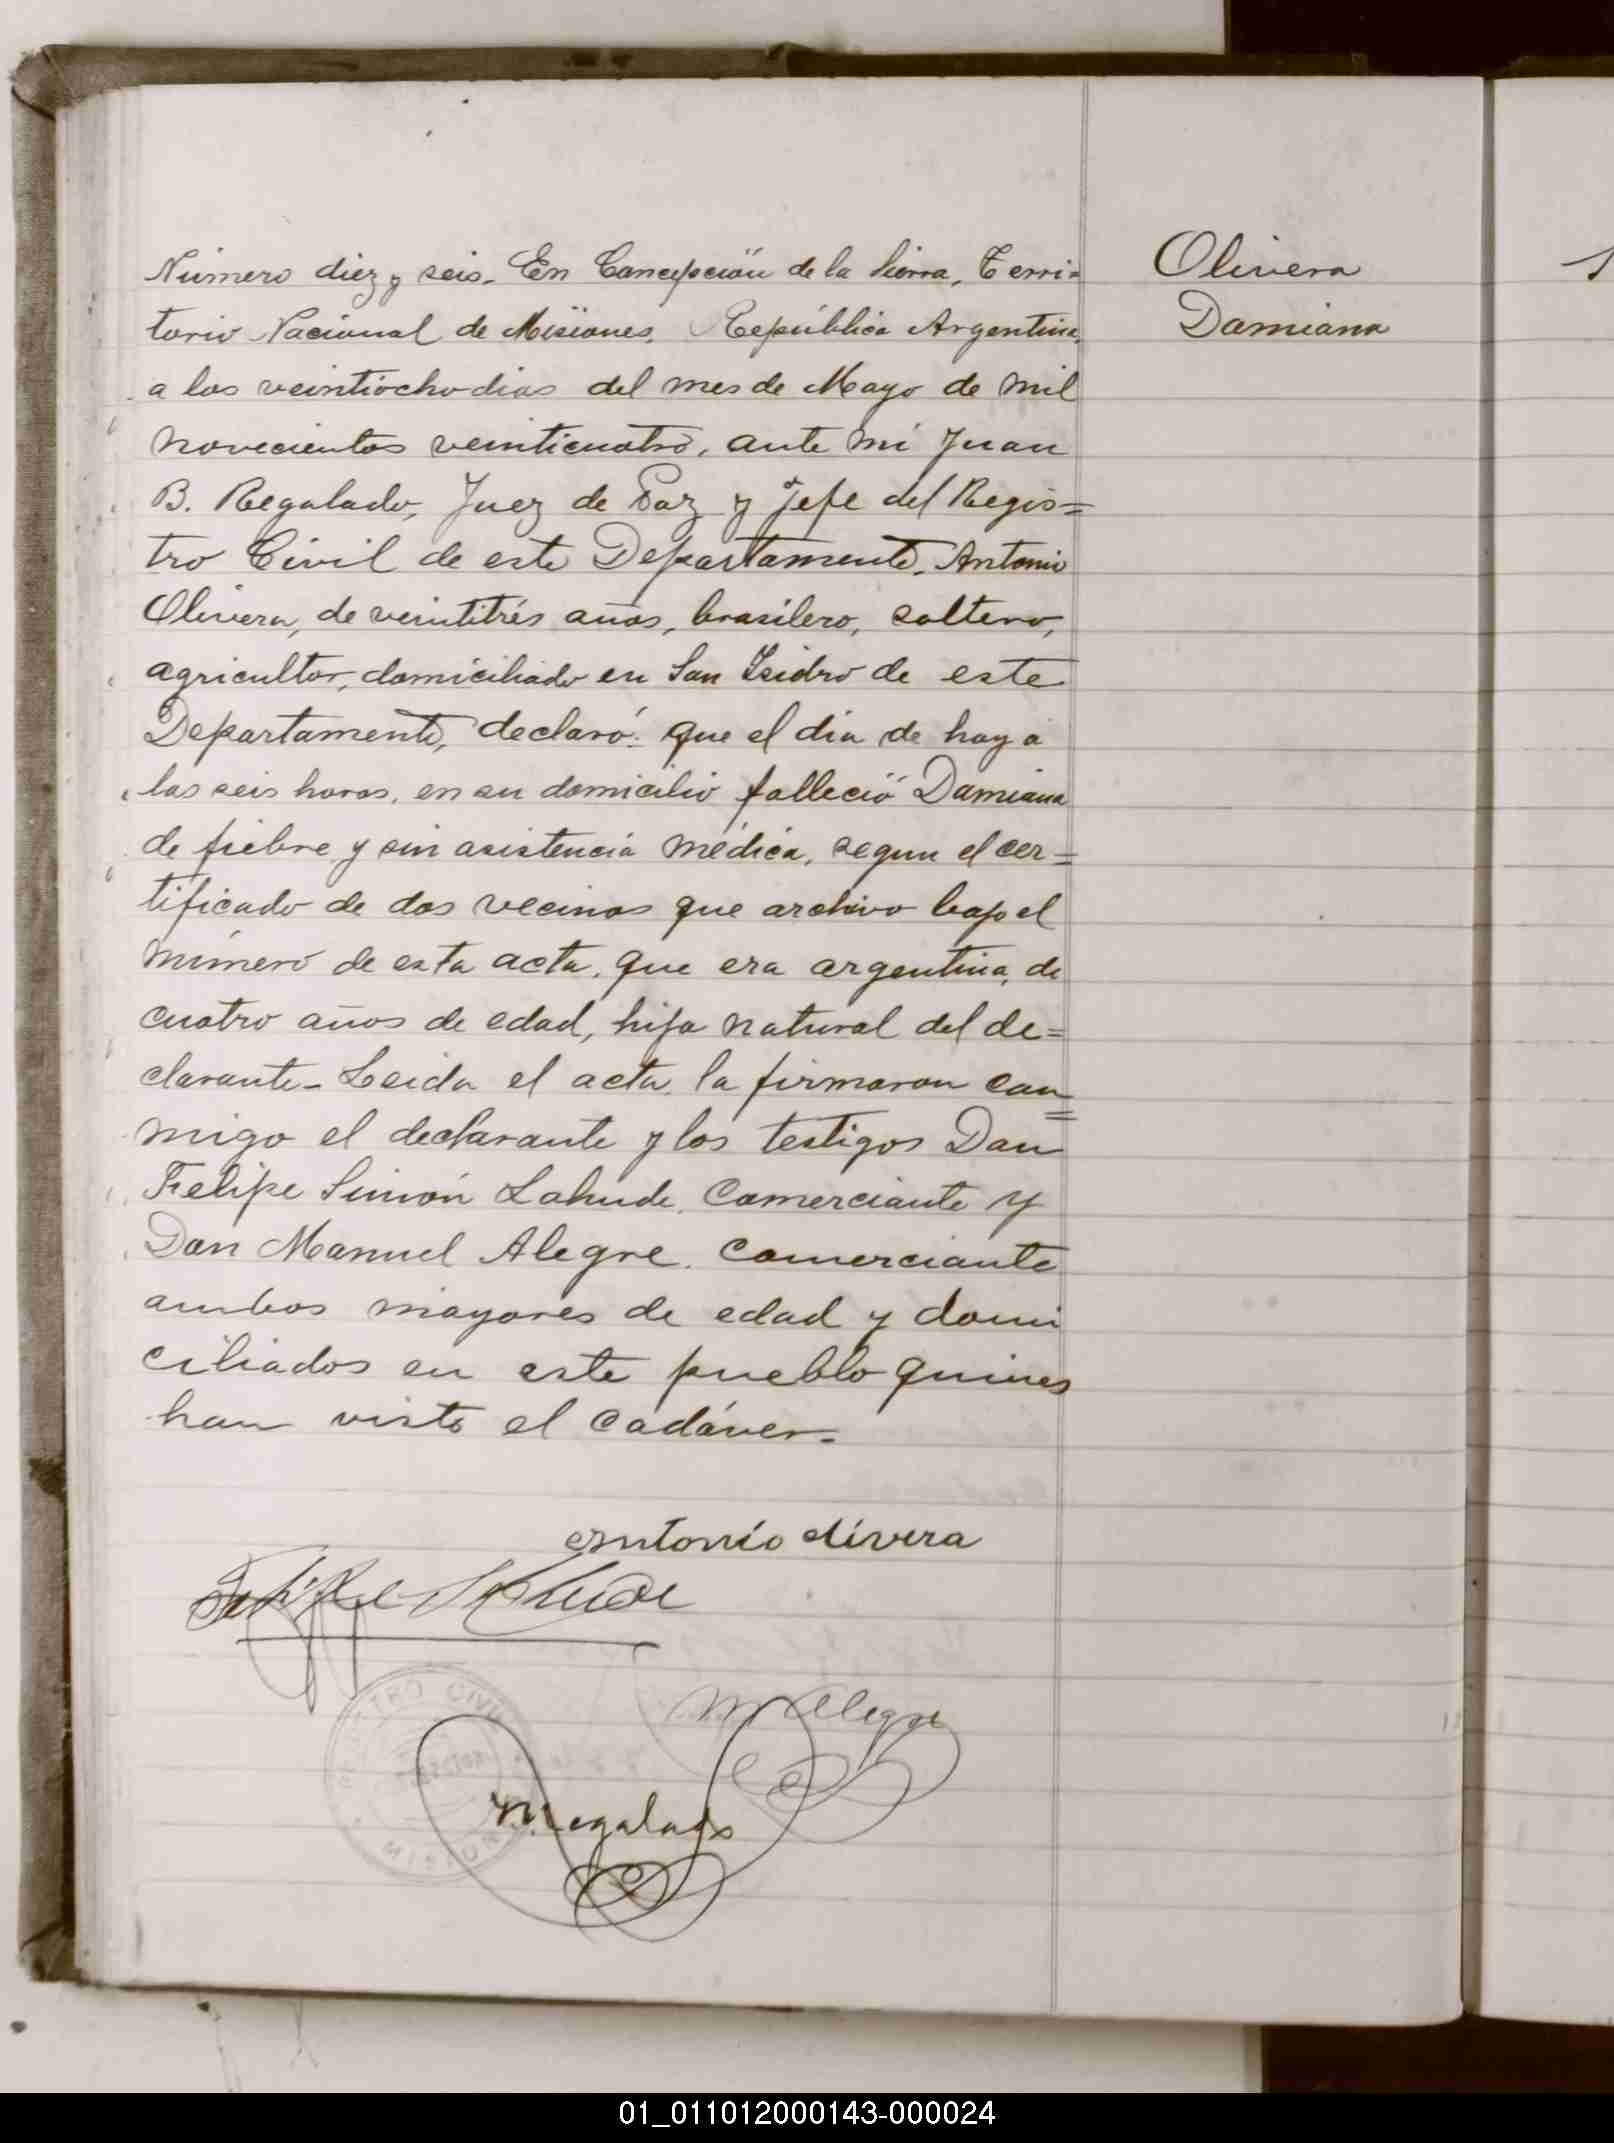 Número diez y seis. En Concepción de la Sierra, Terri=
torio Nacional de Misiones, República Argentina,
a los veintiocho dias del mes de Mayo de mil
novecientos veinticuatro, ante mi Juan
B. Regalado, Juez de Paz y Jefe del Regis=
tro Civil de este Departamento, Antonio
Olivera, de veintitrés años, brasilero, soltero,
agricultor, domiciliado en San Isidro de este
Departamento, declaró: que el dia de hoy a
las seis horas, en su domicilio falleció Damiana
de fiebre y sin asistencia médica, segun el cer=
tificado de dos vecinos que archivo bajo el
número de esta acta, que era argentina, de
cuatro años de edad, hija natural del de=
clarante. Leida el acta, la firmaron con=
migo el declarante y los testigos Don
Felipe Simón Lahude, Comerciante y
Don Manuel Alegre, Comerciante
ambos mayores de edad y domi
ciliados en este pueblo quines
han visto el cadáver.=
Olivera
Damiana
Antonio olivera
Felipe S Lahude
M Alegre
REGISTRO CIVIL
MISIONES
01_011012000143-000024